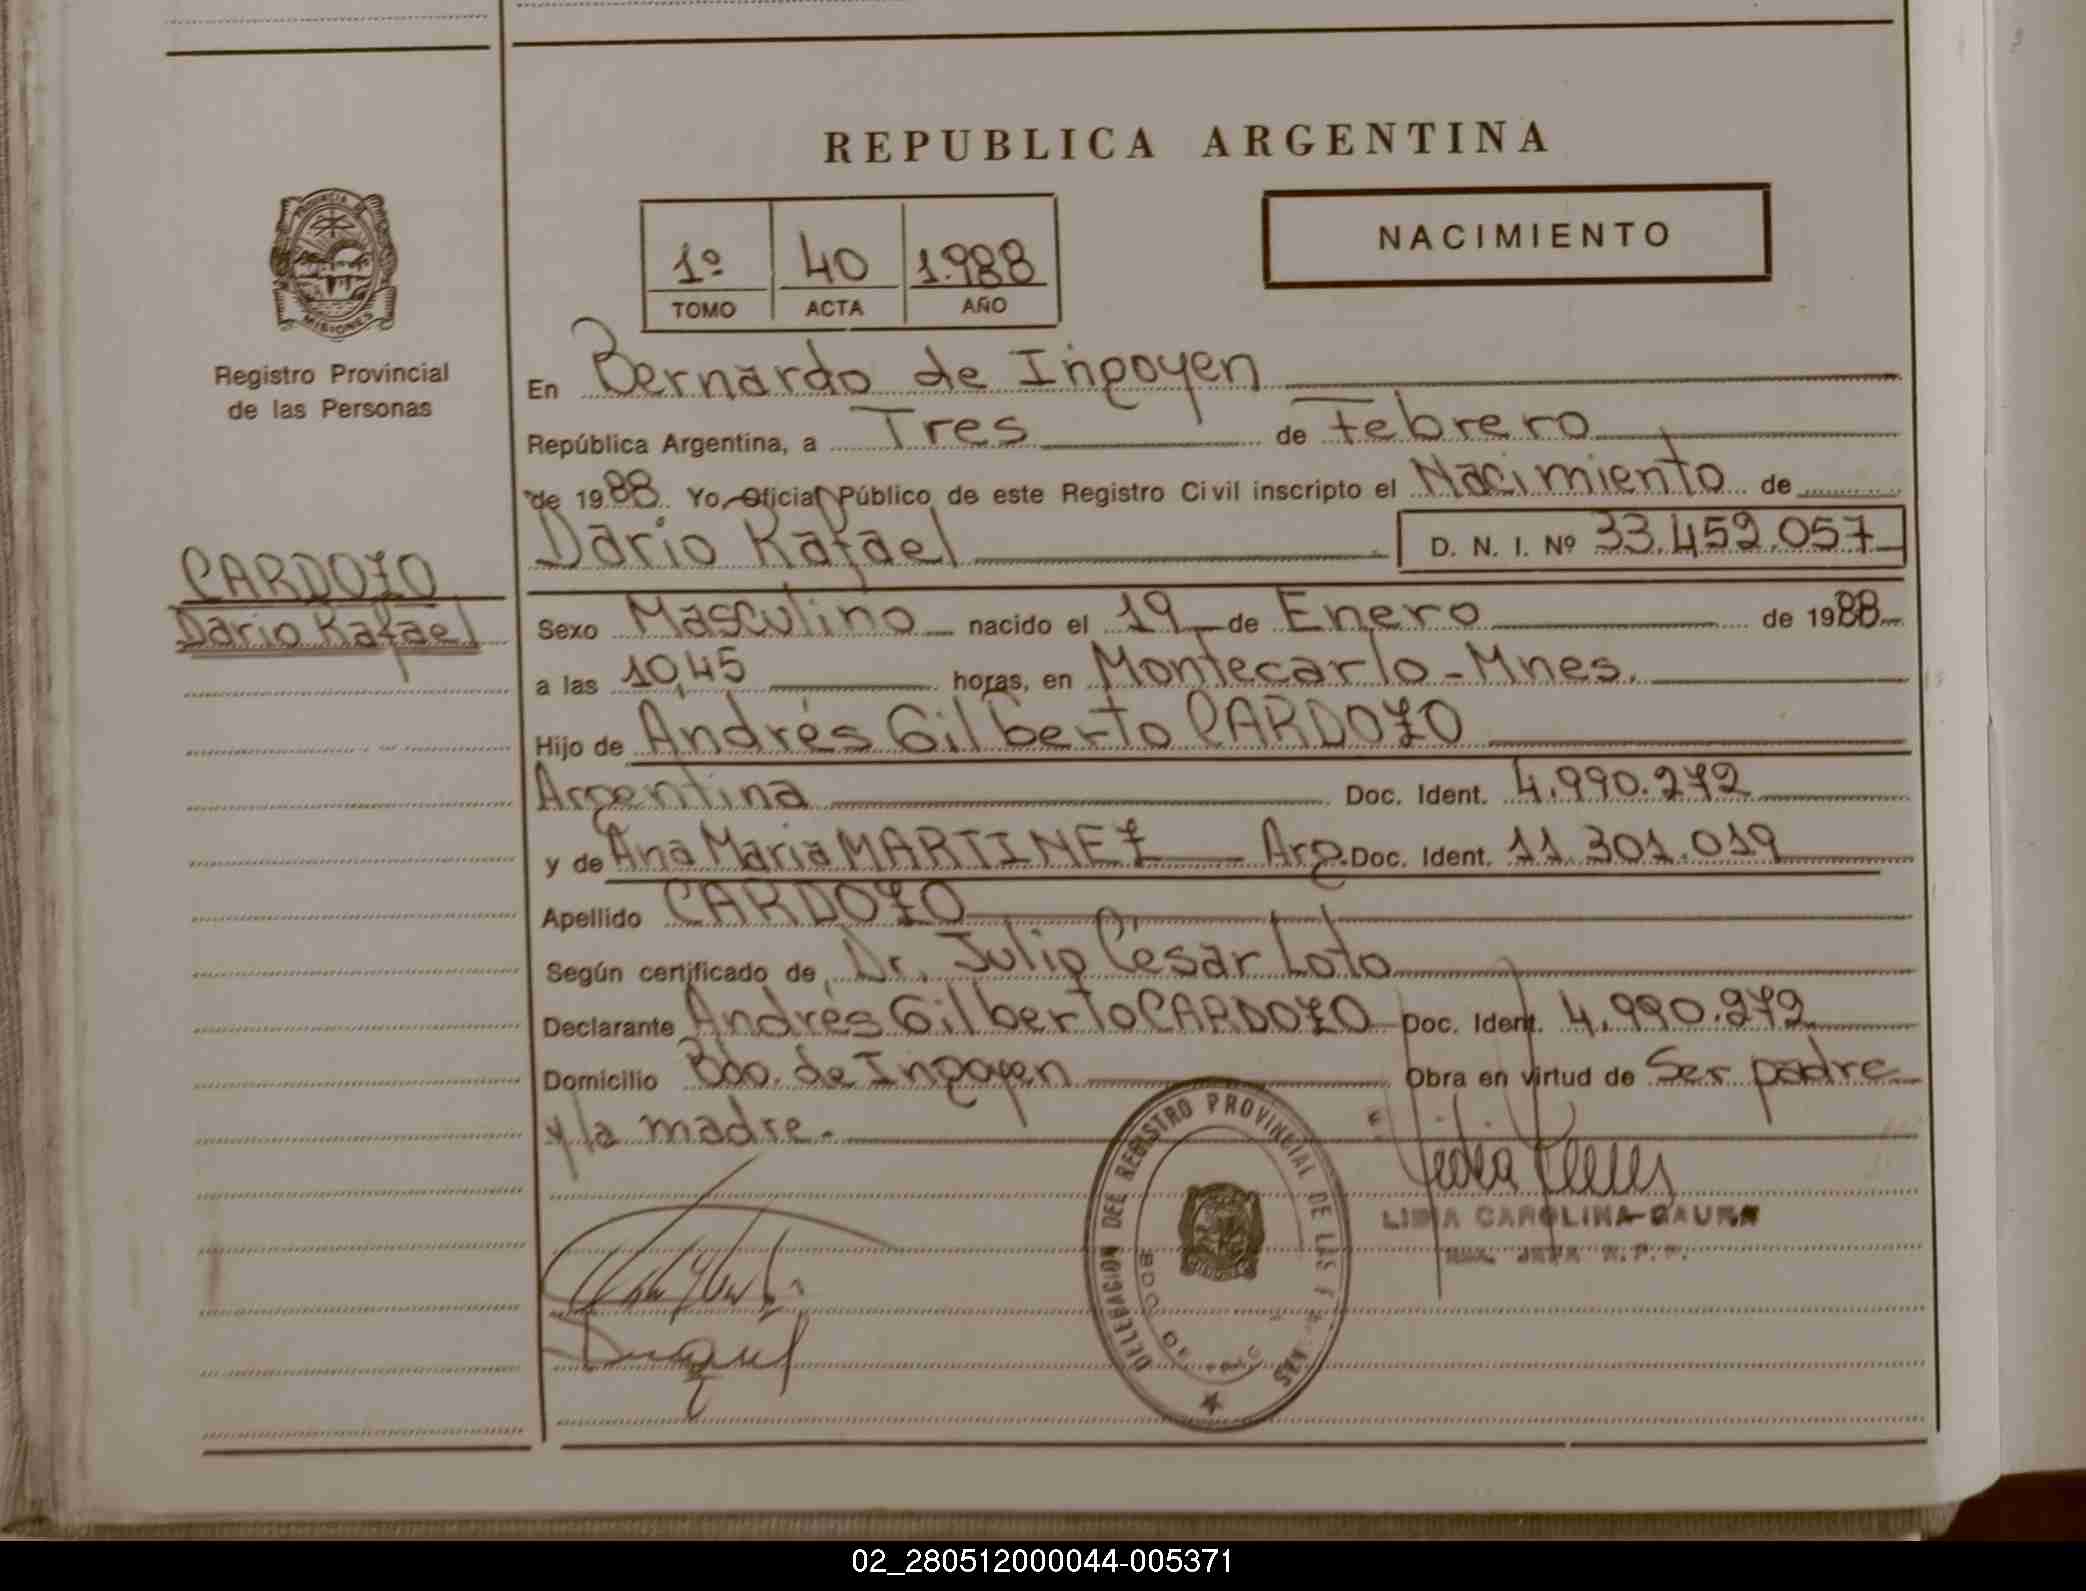 REPUBLICA ARGENTINA
PROVINCIA DE
MISIONES
Registro Provincial
de las Personas
1º 40 1.988
TOMO ACTA AÑO
NACIMIENTO
En Bernardo de Irigoyen
República Argentina, a Tres de Febrero
de 1988. Yo, Oficial Público de este Registro Civil inscripto el Nacimiento de
Dario Rafael D. N. I. Nº 33.459.057
CARDOZO
Dario Rafael
Sexo Masculino nacido el 19 de Enero de 1988
a las 10,45 horas, en Montecarlo - Mnes.
Hijo de Andrés Gilberto CARDOZO
Argentina Doc. Ident. 4.990.272
y de Ana Maria MARTINEZ Arg. Doc. Ident. 11.301.019
Apellido CARDOZO
Según certificado de Dr. Julio César Loto
Declarante Andrés Gilberto CARDOZO Doc. Ident. 4.990.272
Domicilio Bdo. de Irigoyen Obra en virtud de Ser padre
y la madre.
DELEGACION DEL REGISTRO PROVINCIAL DE LAS
BDO DE
LIDIA CAROLINA
02_280512000044-005371